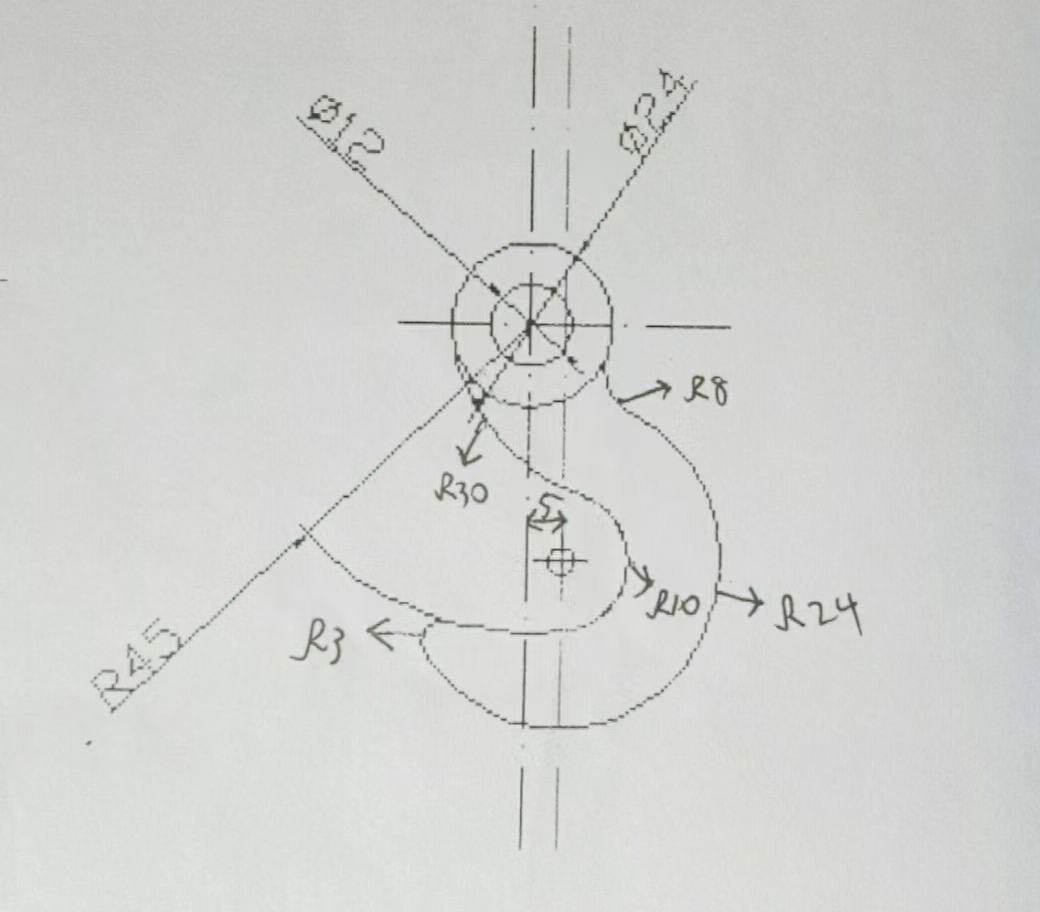 Ø12
Ø24
R8
R30
5
R10
R24
R3
R45